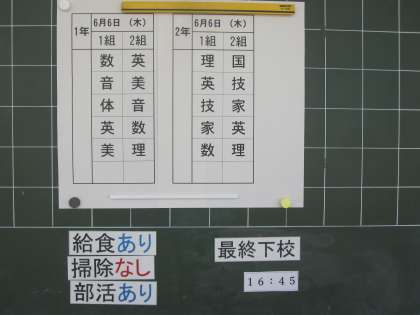 1年 6月6日 (木)
1組 2組
数 英
音 美
体 音
英 数
美 理
2年 6月6日 (木)
1組 2組
理 国
英 技
技 家
家 英
数 理
給食あり
掃除なし
部活あり
最終下校
16:45